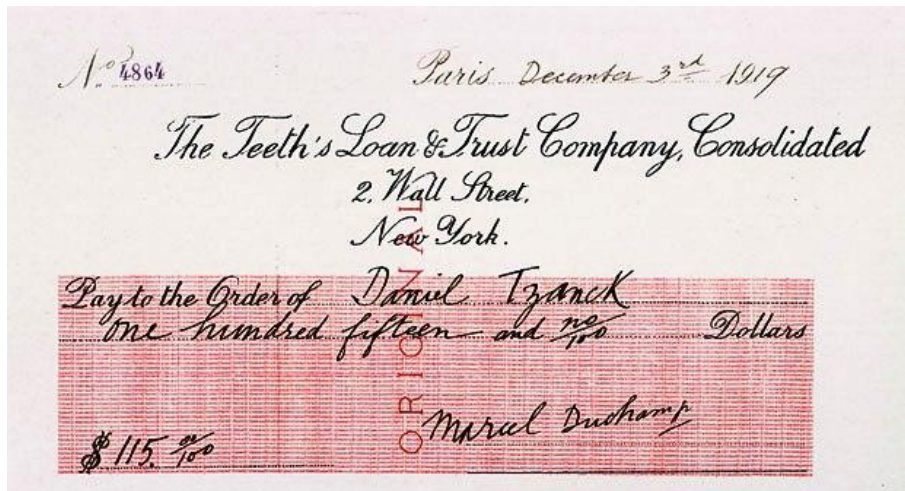 No 4864
Paris December 3rd 1919
The Teeth's Loan & Trust Company, Consolidated
2, Wall Street.
New York.
Pay to the Order of Daniel Tzanck
One hundred fifteen and no/100 Dollars
ORIGINAL
Marcel Duchamp
$ 115. no/100